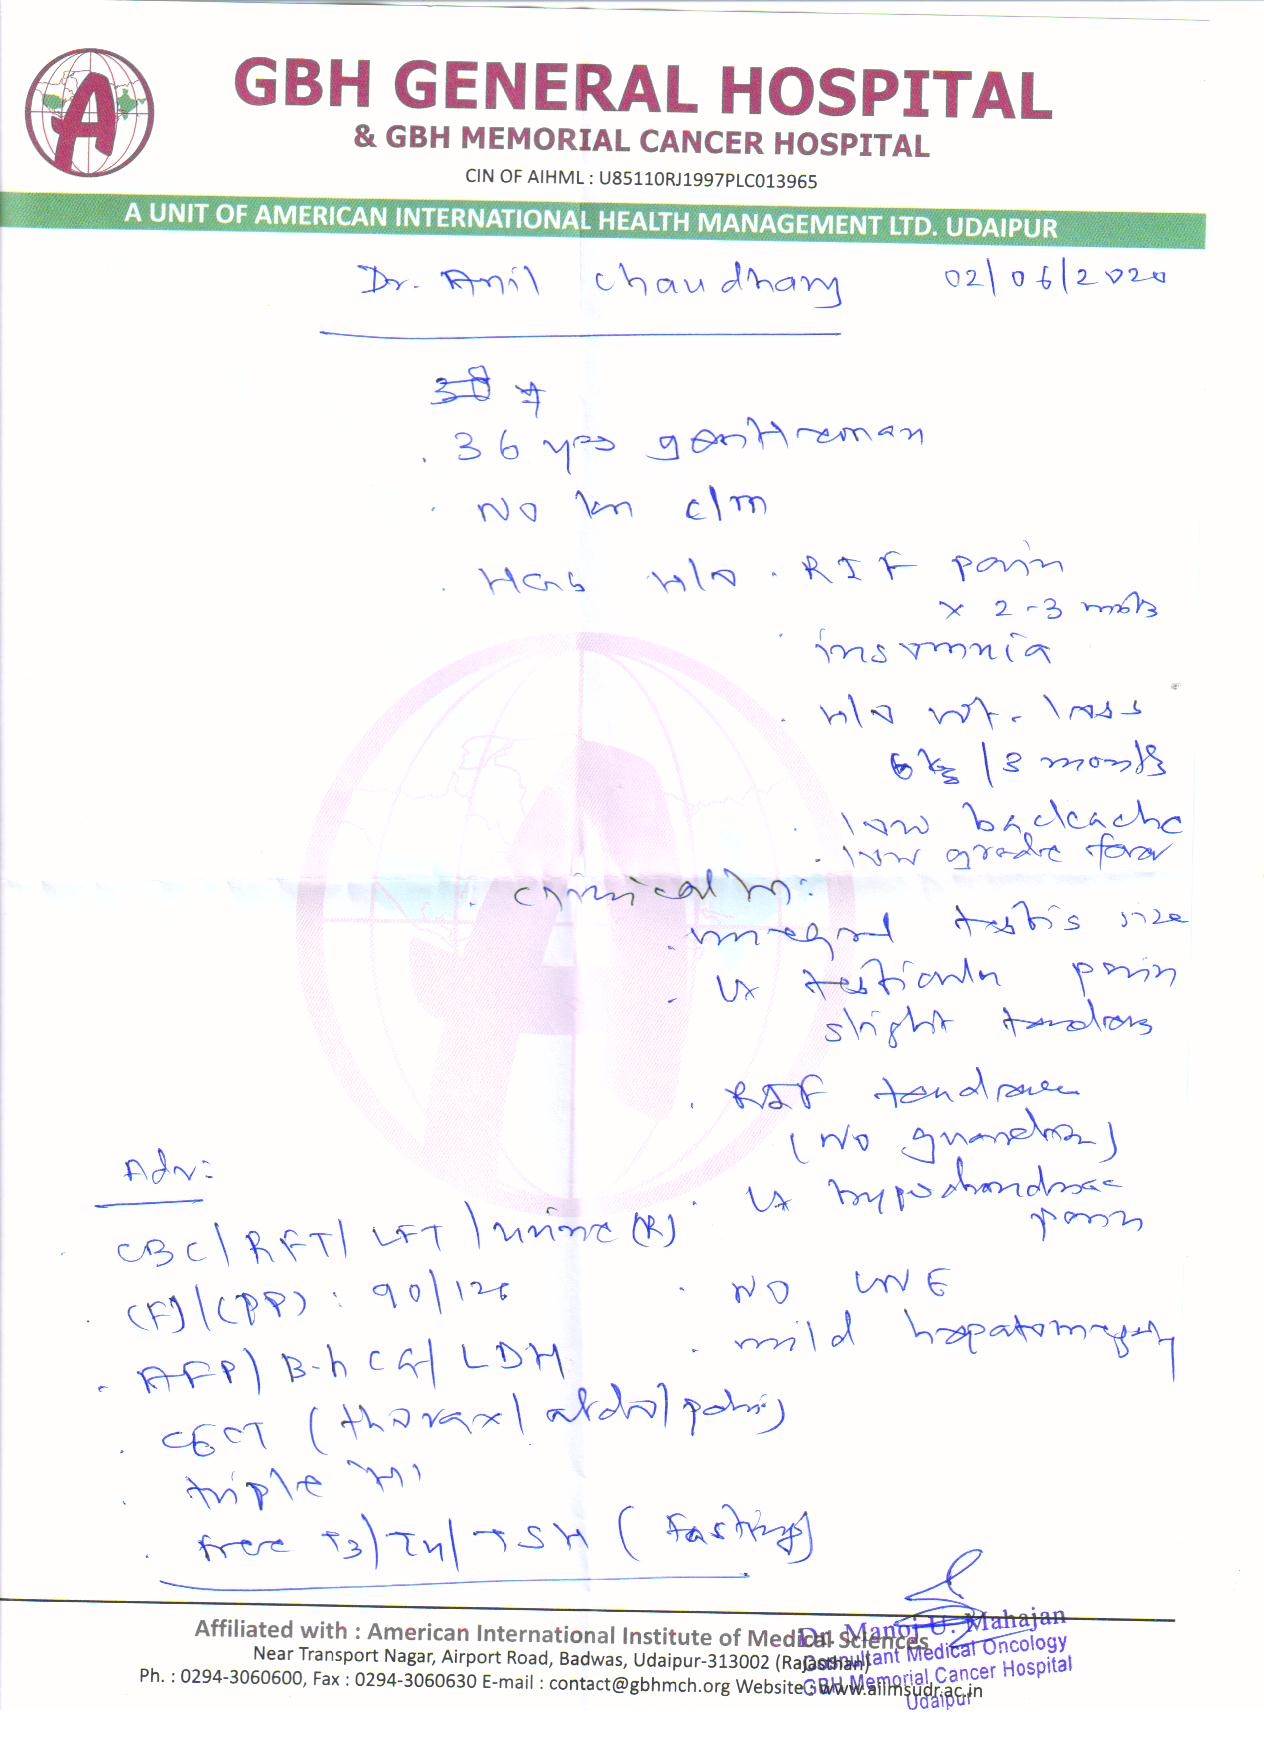 A
GBH GENERAL HOSPITAL
& GBH MEMORIAL CANCER HOSPITAL
CIN OF AIHML : U85110RJ1997PLC013965
A UNIT OF AMERICAN INTERNATIONAL HEALTH MANAGEMENT LTD. UDAIPUR
Dr. Anil Chaudhary 02/06/2020
. 36 yrs gentleman
. NO kn c/m
. H/o . RIF pain
x 2-3 mnths
. insomnia
. H/o wt. loss
6 kg / 3 months
. low backache
. low grade fever
. Clinically:
testis size
. Lt testicular pain
slight tenderness
. RIF tenderness
(NO guarding)
. Lt hypochondriac
pain
. NO LNE
. mild hepatomegaly
Adv:
. CBC/RFT/LFT/urine (R)
. (F)/(PP) : 90/126
. AFP/B-hCG/LDH
. CECT (thorax/abdo/pelvis)
. triple "H"
. free T3/T4/TSH (Fasting)
Affiliated with : American International Institute of Medical Sciences
Near Transport Nagar, Airport Road, Badwas, Udaipur-313002 (Rajasthan)
Ph. : 0294-3060600, Fax : 0294-3060630 E-mail : contact@gbhmch.org Website : www.aiimsudr.ac.in
Dr. Manoj U. Mahajan
Consultant Medical Oncology
GBH Memorial Cancer Hospital
Udaipur